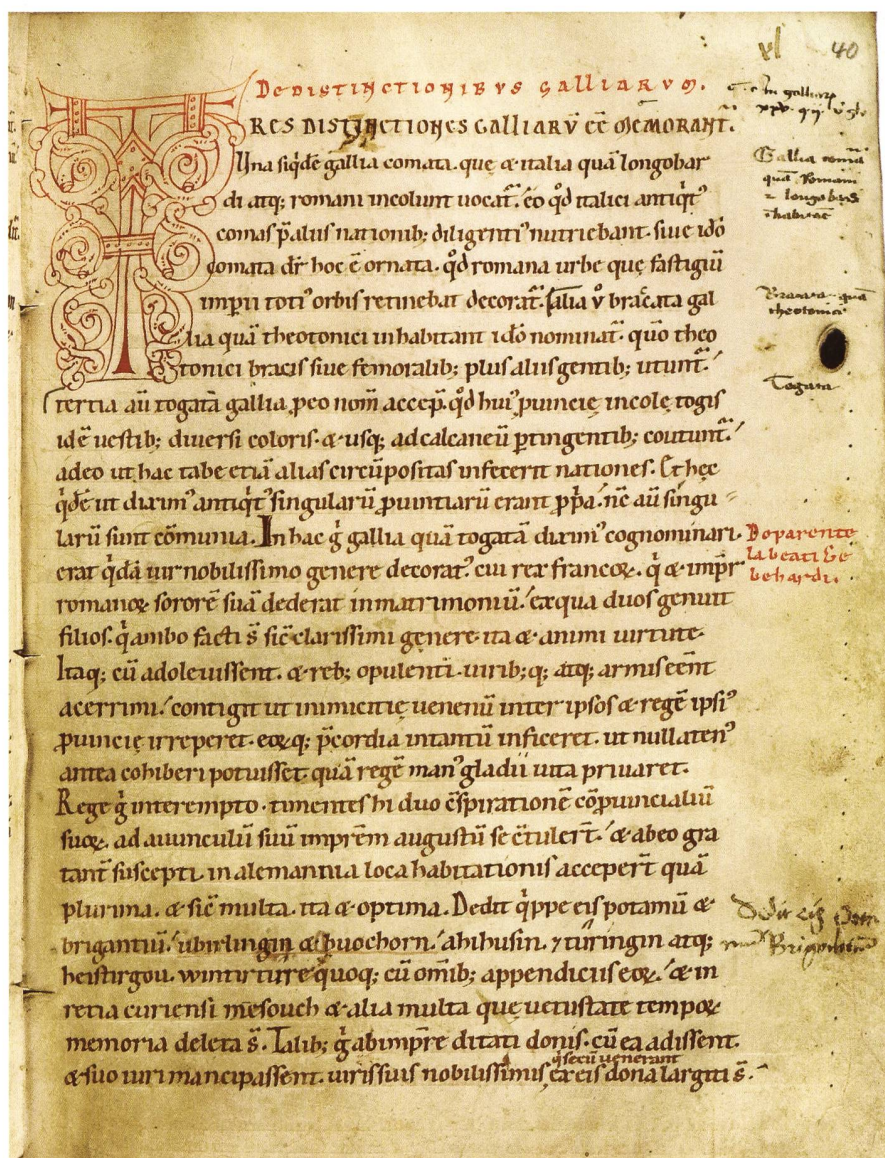 xl 40
De distinctionibus galliarum.
TRES DISTINCTIONES GALLIARV̄ EE͞ MEMORANT̄.
Una siq̇dē gallia comata. que & italia quā longobar
di atq; romani incolunt uocat̄. eo qd̊ italici antiq̇t᷒
comas p̄ aliis nationib; diligenti᷒ nutriebant. siue idō
comata dr̄ hoc ē ornata. qd̊ romana urbe que fastigiū
imperii toti᷒ orbis retinebat decorat̄. Alia v̊ bracata gal
lia quā theotonici inhabitant idō nominat̄. quō theo
tonici bracis siue femoralib; plus aliis gentib; utunt̄.
tertia aū togata gallia ꝓ eo nom̄ accep̄. qd̊ hui᷒ ꝓuincię incolę togis
idē uestib; diuersi coloris. & usq; ad calcaneū ꝑtingentib; coutunt̄.
adeo ut hac tabe etiā alias circūpositas infecerit nationes. Et hęc
q̇dē ut dixim᷒ antiq̇t᷒ singularū ꝓuintiarū erant ꝓp̄a. nc̄ aū singu
larū sunt cōmunia. In hac g̊ gallia quā togatā dixim᷒ cognominari.
erat q̇dā uir nobilissimo genere decorat᷒. cui rex francoꝝ. q̇ & imp̄r
romanoꝝ sororē suā dederat in matrimoniū. ex qua duos genuit
filios. q̇ ambo facti s̄ sic̄ clarissimi genere. ita & animi uirtute.
Itaq; cū adoleuissent. & reb; opulenti. uirib;q; atq; armis eēnt
acerrimi. contigit ut inimicitię uenenū inter ipsos & regē ipsi᷒
ꝓuincię irreperet. eoꝝq; p̄cordia intantū inficeret. ut nullaten᷒
antea cohiberi potuisset quā regē man᷒ gladii uita priuaret.
Rege g̊ interempto. timentes hi duo c̄spirationē cōꝓuincialiū
suoꝝ. ad auunculū suū imp̄rēm augustū se c̄tulert̄. & ab eo gra
tant̄ suscepti. in alemannia loca habitationis accepert̄ quā
plurima. & sic̄ multa. ita & optima. Dedit q̇ppe eis potamū &
brigantiū. ubirlingin & buochorn. ahihusin. ⁊ tūringin atq;
heistirgou. wintirture q̊quoq; cū om̄ib; appendiciis eoꝝ. & in
retia curiensi mesouch & alia multa quę uetustate tempoꝝ
memoria deleta s̄. Talib; g̊ ab imp̄re ditati donis. cū ea adissent.
& suo iuri mancipassent. uiris suis nobilissimis q̇ secū uenerant ex eis dona largiti s̄.
Gallia comata
quā Romani
⁊ longobardi
Bracata quā
theotonici
Togata
De parente
la beati Ge
behardi.